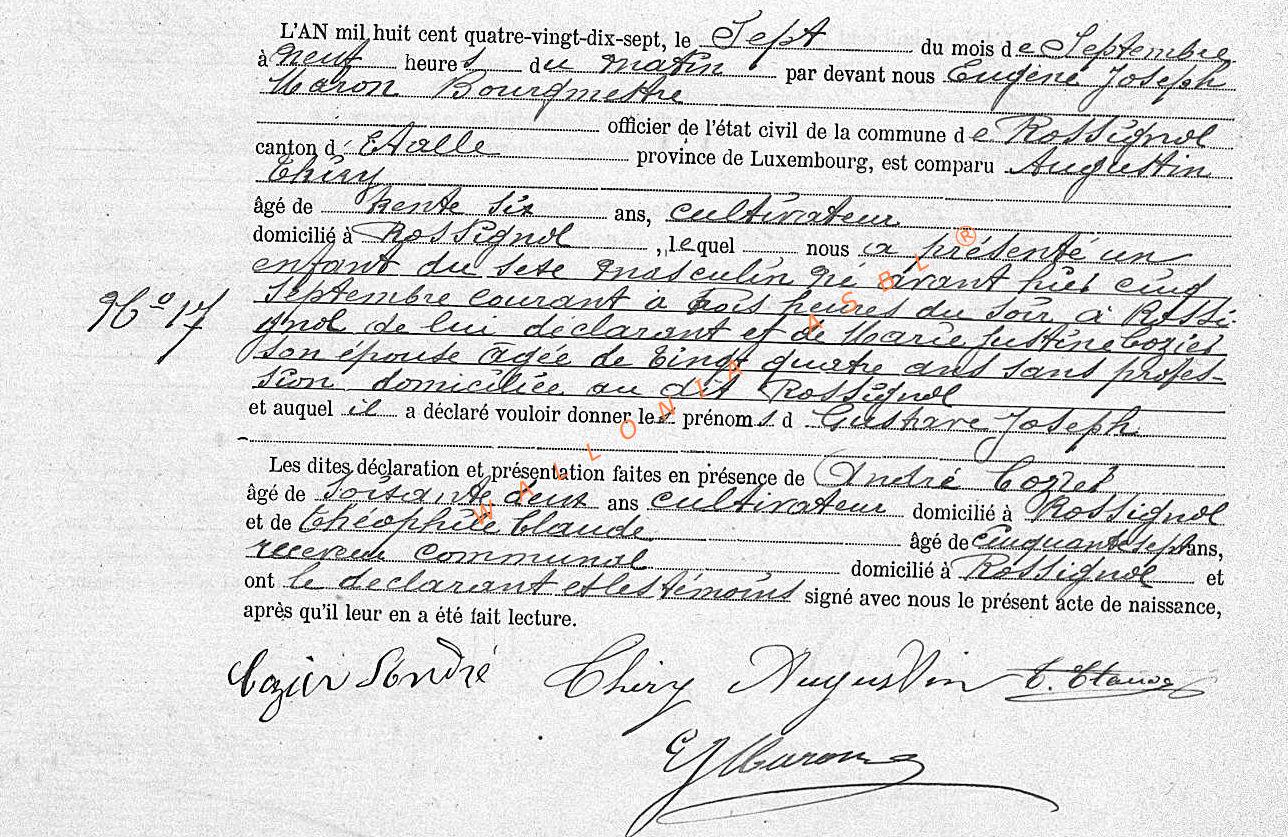 L'AN mil huit cent quatre-vingt-dix-sept, le Sept du mois de Septembre
à neuf heures du matin par devant nous Eugène Joseph
Maron Bourgmestre
officier de l'état civil de la commune de Rossignol
canton d'Etalle province de Luxembourg, est comparu Augustin
Thiry
âgé de trente six ans, cultivateur
domicilié à Rossignol, lequel nous a présenté un
enfant du sexe masculin né avant hier cinq
Septembre courant à trois heures du soir, à Rossi-
gnol de lui déclarant et de Marie Justine Cozier
son épouse âgée de vingt quatre ans sans profes-
sion domiciliée au dit Rossignol
N° 17
et auquel il a déclaré vouloir donner les prénoms d Gustave Joseph
Les dites déclaration et présentation faites en présence de André Cozier
âgé de soixante deux ans cultivateur domicilié à Rossignol
et de Théophile Claude âgé de cinquante sept ans,
receveur communal domicilié à Rossignol et
ont le déclarant et les témoins signé avec nous le présent acte de naissance,
après qu'il leur en a été fait lecture.
Cozier André Thiry Augustin T. Claude
EJMaron
WALLONIA ASBL ®